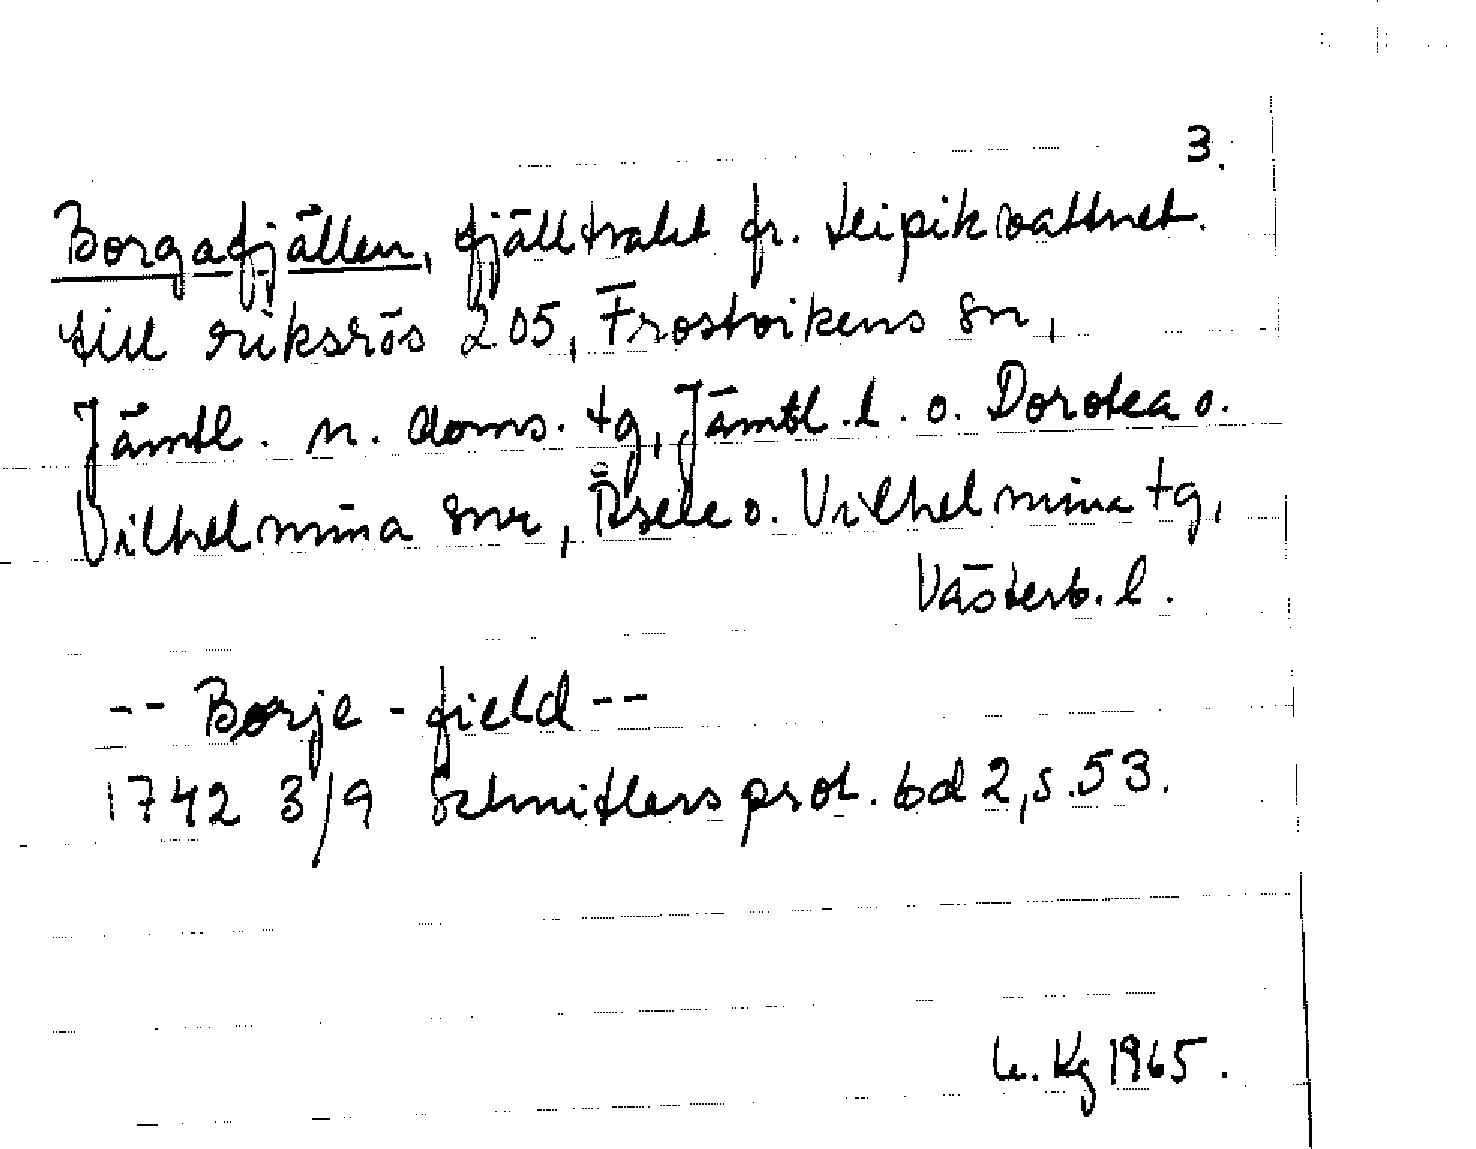 3.
Borgafjällen, fjälltrakt fr. Leipikvattnet.
till riksrös 205, Frostvikens sn,
Jämtl. n. doms. tg, Jämtl. l. o. Dorotea o.
Vilhelmina snr, Åsele o. Vilhelmina tg,
Västerb. l.
-- Borje - field --
1742 3/9 Schnitlers prot. bd 2, s. 53.
Kg 1965.